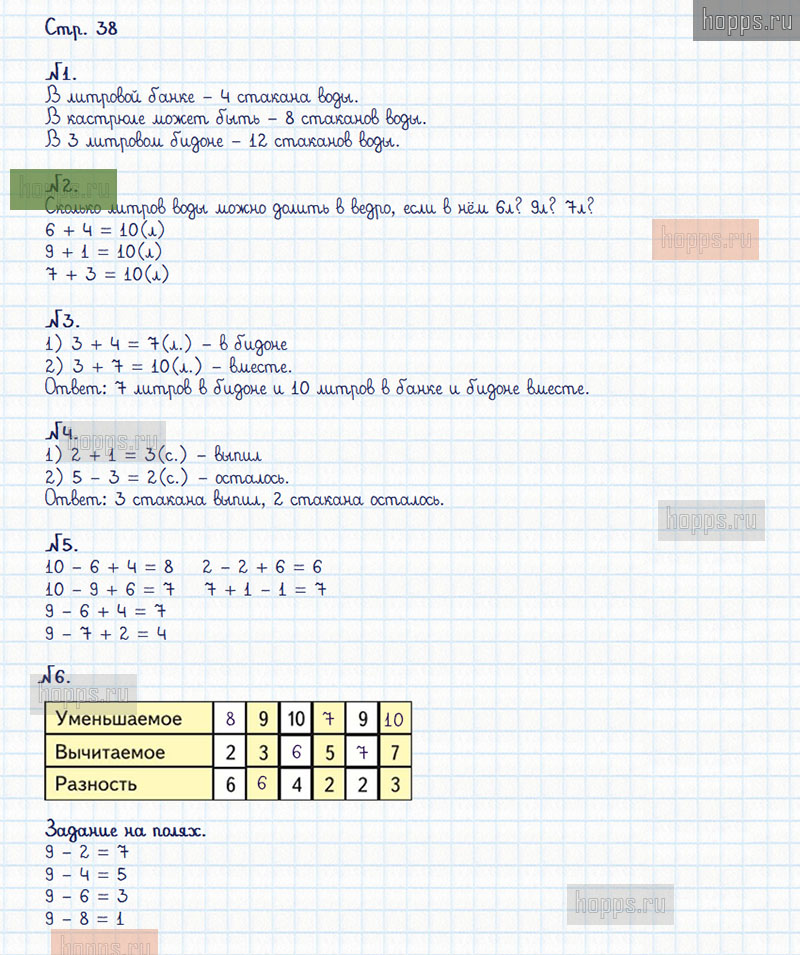 Стр. 38
hopps.ru
№1.
В литровой банке – 4 стакана воды.
В кастрюле может быть – 8 стаканов воды.
В 3 литровом бидоне – 12 стаканов воды.
№2.
hopps.ru
Сколько литров воды можно долить в ведро, если в нём 6л? 9л? 7л?
6 + 4 = 10(л)
hopps.ru
9 + 1 = 10(л)
7 + 3 = 10(л)
№3.
1) 3 + 4 = 7(л.) – в бидоне
2) 3 + 7 = 10(л.) – вместе.
Ответ: 7 литров в бидоне и 10 литров в банке и бидоне вместе.
№4.
hopps.ru
1) 2 + 1 = 3(с.) – выпил
2) 5 – 3 = 2(с.) – осталось.
Ответ: 3 стакана выпил, 2 стакана осталось.
hopps.ru
№5.
10 – 6 + 4 = 8 2 – 2 + 6 = 6
10 – 9 + 6 = 7 7 + 1 – 1 = 7
9 – 6 + 4 = 7
9 – 7 + 2 = 4
№6.
hopps.ru
Уменьшаемое 8 9 10 7 9 10
Вычитаемое 2 3 6 5 7 7
Разность 6 6 4 2 2 3
Задание на полях.
9 – 2 = 7
9 – 4 = 5
9 – 6 = 3
hopps.ru
9 – 8 = 1
hopps.ru